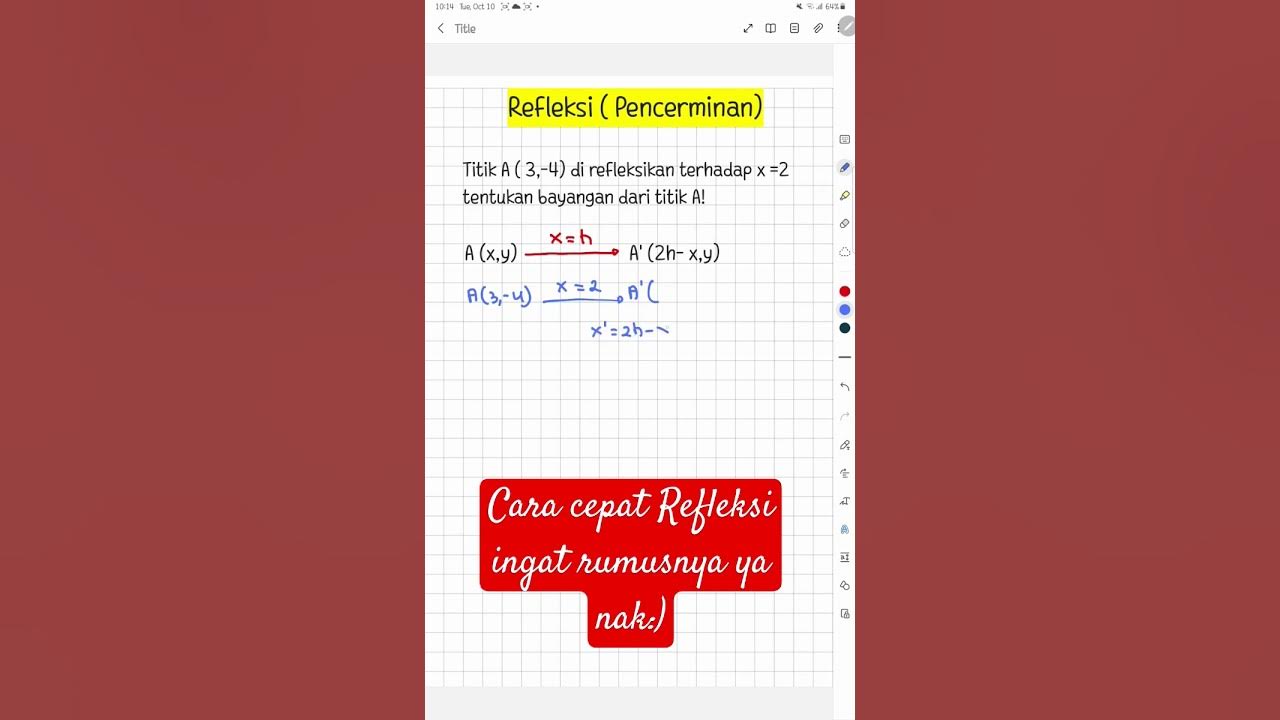 10:14 Tue, Oct 10
64%
Title
Refleksi ( Pencerminan)
Titik A ( 3,-4) di refleksikan terhadap x =2
tentukan bayangan dari titik A!
x=h
A (x,y) A' (2h- x,y)
x = 2
A(3,-4) A' (
x' = 2h-
Cara cepat Refleksi
ingat rumusnya ya
nak:)